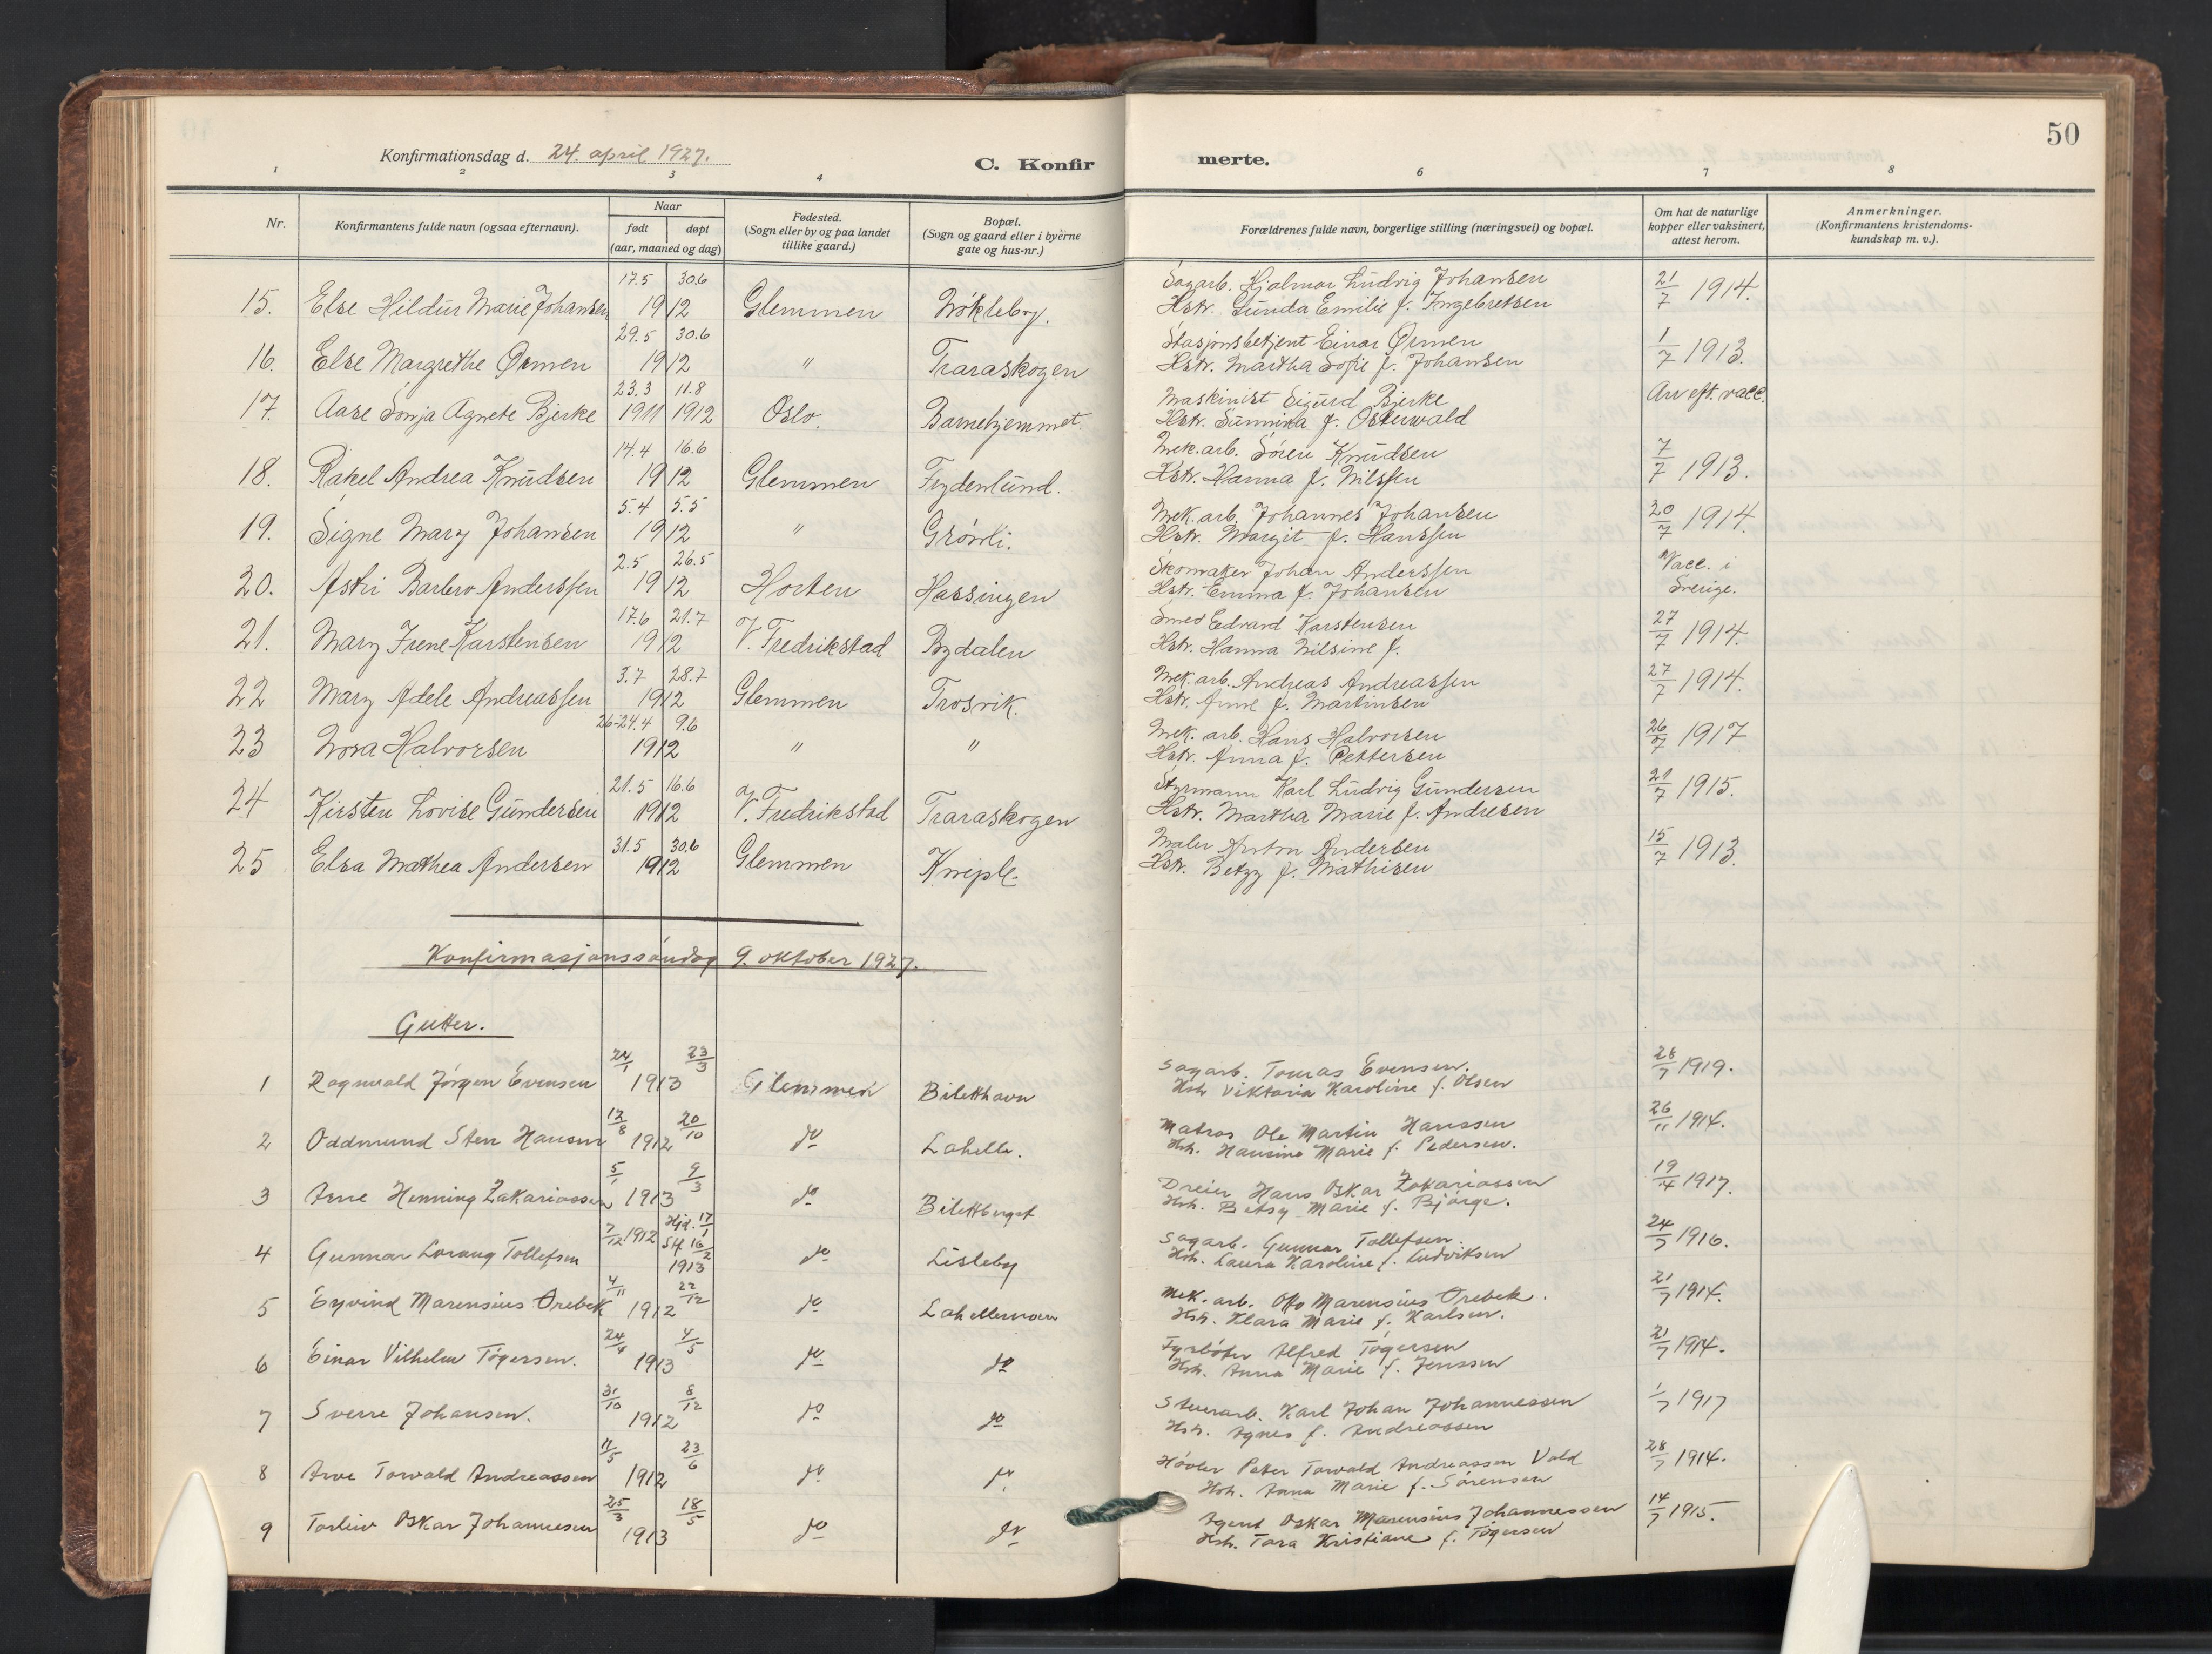 50
Konfirmationsdag d. 24. april 1927.
C. Konfirmerte.
1 2 3 4 6 7 8
Nr.
Konfirmantens fulde navn (ogsaa efternavn).
Naar
født døpt
(aar, maaned og dag)
Fødested.
(Sogn eller by og paa landet
tillike gaard.)
Bopæl.
(Sogn og gaard eller i byerne
gate og hus-nr.)
Forældrenes fulde navn, borgerlige stilling (næringsvei) og bopæl.
Om hat de naturlige
kopper eller vaksinert,
attest herom.
Anmerkninger.
(Konfirmantens kristendoms-
kundskap m. v.).
17.5 30.6 Sagarb. Hjalmar Ludvig Johansen 21/7 1914.
15. Else Hildur Marie Johansen 1912 Glemmen Nøkleby. Hstr. Gunda Emilie f. Ingebretsen
29.5 30.6 Stasjonsbetjent Einar Ørmen 1/7 1913.
16. Else Margrethe Ørmen 1912 " Traraskogen Hstr. Martha Sofie f. Johansen
23.3 11.8 Maskinist Sigurd Bjerke Arr eft. vacc.
17. Aase Sonja Agnete Bjerke 1911 1912 Oslo. Barnehjemmet. Hstr. Sunniva f. Osterwald
14.4 16.6 Mek. arb. Søren Knudsen 7/7 1913.
18. Rakel Andrea Knudsen 1912 Glemmen Frydenlund. Hstr. Hanna f. Nilssen
5.4 5.5 Mek. arb. Johannes Johansen 20/7 1914.
19. Signe Mary Johansen 1912 " Grønli. Hstr. Margit f. Hanssen
2.5 26.5 Skomaker Johan Anderssen Vacc. i
20. Astri Barbro Anderssen 1912 Horten Hassingen Hstr. Emma f. Johansen Sverige.
17.6 21.7 Smed Edvard Karstensen 27/7 1914.
21. Mary Irene Karstensen 1912 V. Fredrikstad Bydalen Hstr. Hanna Nilsine f.
3.7 28.7 Mek. arb. Andreas Andreassen 27/7 1914.
22 Mary Adele Andreassen 1912 Glemmen Trosvik. Hstr. Anne f. Martinsen
26-24.4 9.6 Mek. arb. Hans Halvorsen 26/7 1917
23 Nora Halvorsen 1912 " " Hstr. Anna f. Pettersen
21.5 16.6 Styrmann Karl Ludvig Gundersen 21/7 1915.
24 Kirsten Lovise Gundersen 1912 V. Fredrikstad Traraskogen Hstr. Martha Marie f. Andresen
31.5 30.6 Maler Anton Andersen 15/7 1913.
25 Elsa Mathea Andersen 1912 Glemmen Kniple. Hstr. Betzy f. Mathisen
Konfirmasjonssøndag 9. oktober 1927.
Gutter.
24/1 23/3 Sagarb. Tomas Evensen. 28/7 1919.
1 Ragnvald Jørgen Evensen 1913 Glemmen Biletthavn Hstr. Viktoria Karoline f. Olsen
12/8 20/10 Matros Ole Martin Hanssen 26/11 1914.
2 Oddmund Sten Hansen 1912 do Lahelle. Hstr. Hansine Marie f. Pedersen.
5/1 9/3 Dreier Hans Oskar Zakariassen 19/4 1917.
3 Arne Henning Zakariassen 1913 do Bilettberget Hstr. Betsy Marie f. Bjørge.
7/12 1912 Hjd. 17/1 Stf 16/2 1913 Sagarb. Gunnar Tollefsen. 24/7 1916.
4 Gunnar Lorang Tollefsen do Lisleby Hstr. Laura Karoline f. Ludviksen
4/11 22/12 Mek. arb. Otto Marensius Orebek. 21/7 1914.
5 Eyvind Marensius Orebek 1912 do Lahellemoen Hstr. Klara Marie f. Karlsen.
24/4 4/5 Fyrbøter Alfred Tøgersen 21/7 1914.
6 Einar Vilhelm Tøgersen. 1913 do do Hstr. Anna Marie f. Jenssen
31/10 8/12 Stuerarb. Karl Johan Johannessen 1/7 1917
7 Sverre Johansen. 1912 do do Hstr. Agnes f. Andreassen
11/5 23/6 Høvler Peter Torvald Andreassen Vold 28/7 1914.
8 Arve Torvald Andreassen 1912 do do Hstr. Anna Marie f. Sørensen
25/3 18/5 Agent Oskar Marensius Johannessen 14/7 1915.
9 Torleiv Oskar Johannesen 1913 do do Hstr. Tora Kristiane f. Tøgersen